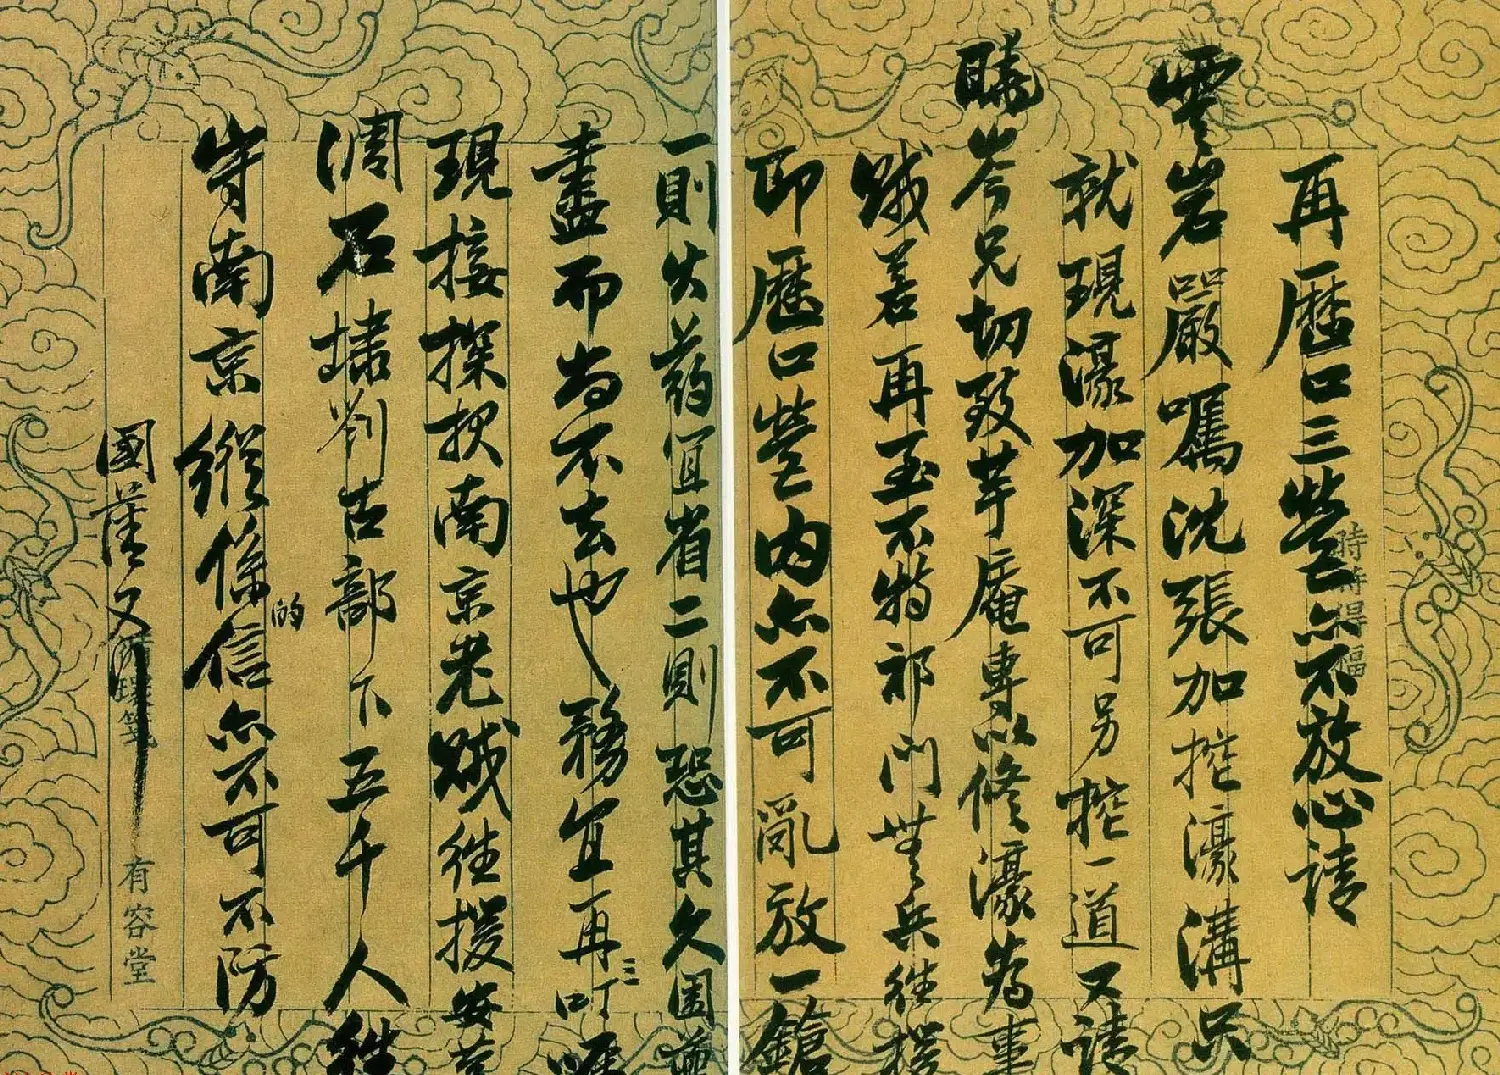 再歷口三營亦不放心請
雲岩嚴囑沈張加挖濠溝只
就現濠加深不可另挖一道又請
曉岑兄切致芋庵專以修濠為事
賊若再至不特祁門無兵往援
即歷口營內亦不可亂放一鎗
一則火药宜省二則恐其久困而
盡而為不去也務宜再三叮嚀
現接探报南京老賊往援安慶
溧石埭劉古部下五千人往
守南京縱係的信亦不可不防
國藩又
時時得福
有容堂